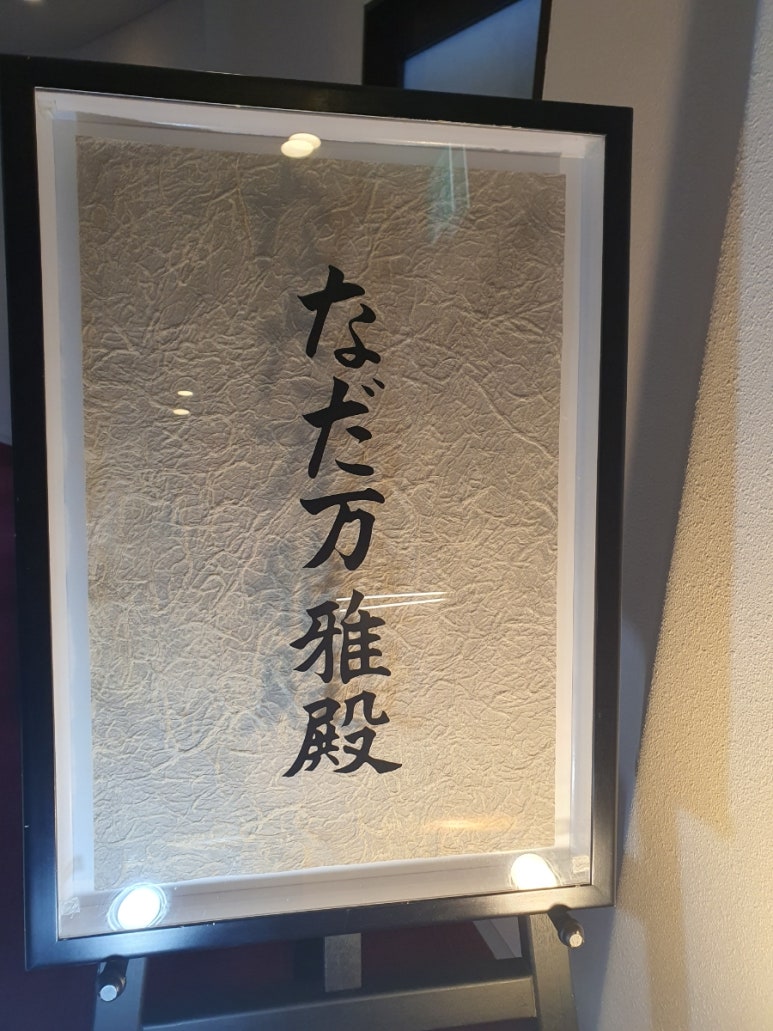 なだ万 雅殿